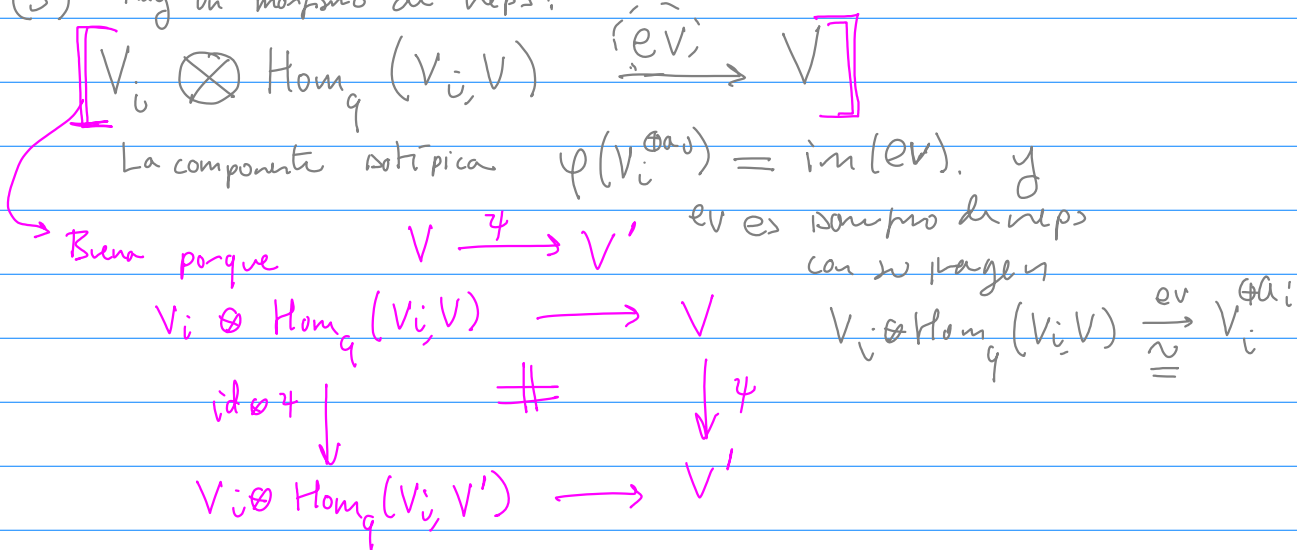 (3) Hay un morfismo de reps:
V_i ⊗ Hom_g (V_i, V) —ev→ V
La componente isotípica φ(V_i^{⊕a_i}) = im(ev). y
ev es isomorfismo de reps
con su imagen
V_i ⊗ Hom_g (V_i, V) —ev→ ≅ V_i^{⊕a_i}
Buena porque V —ψ→ V'
V_i ⊗ Hom_g (V_i, V) ⟶ V
id⊗ψ ↓ # ↓ ψ
V_i ⊗ Hom_g (V_i, V') ⟶ V'